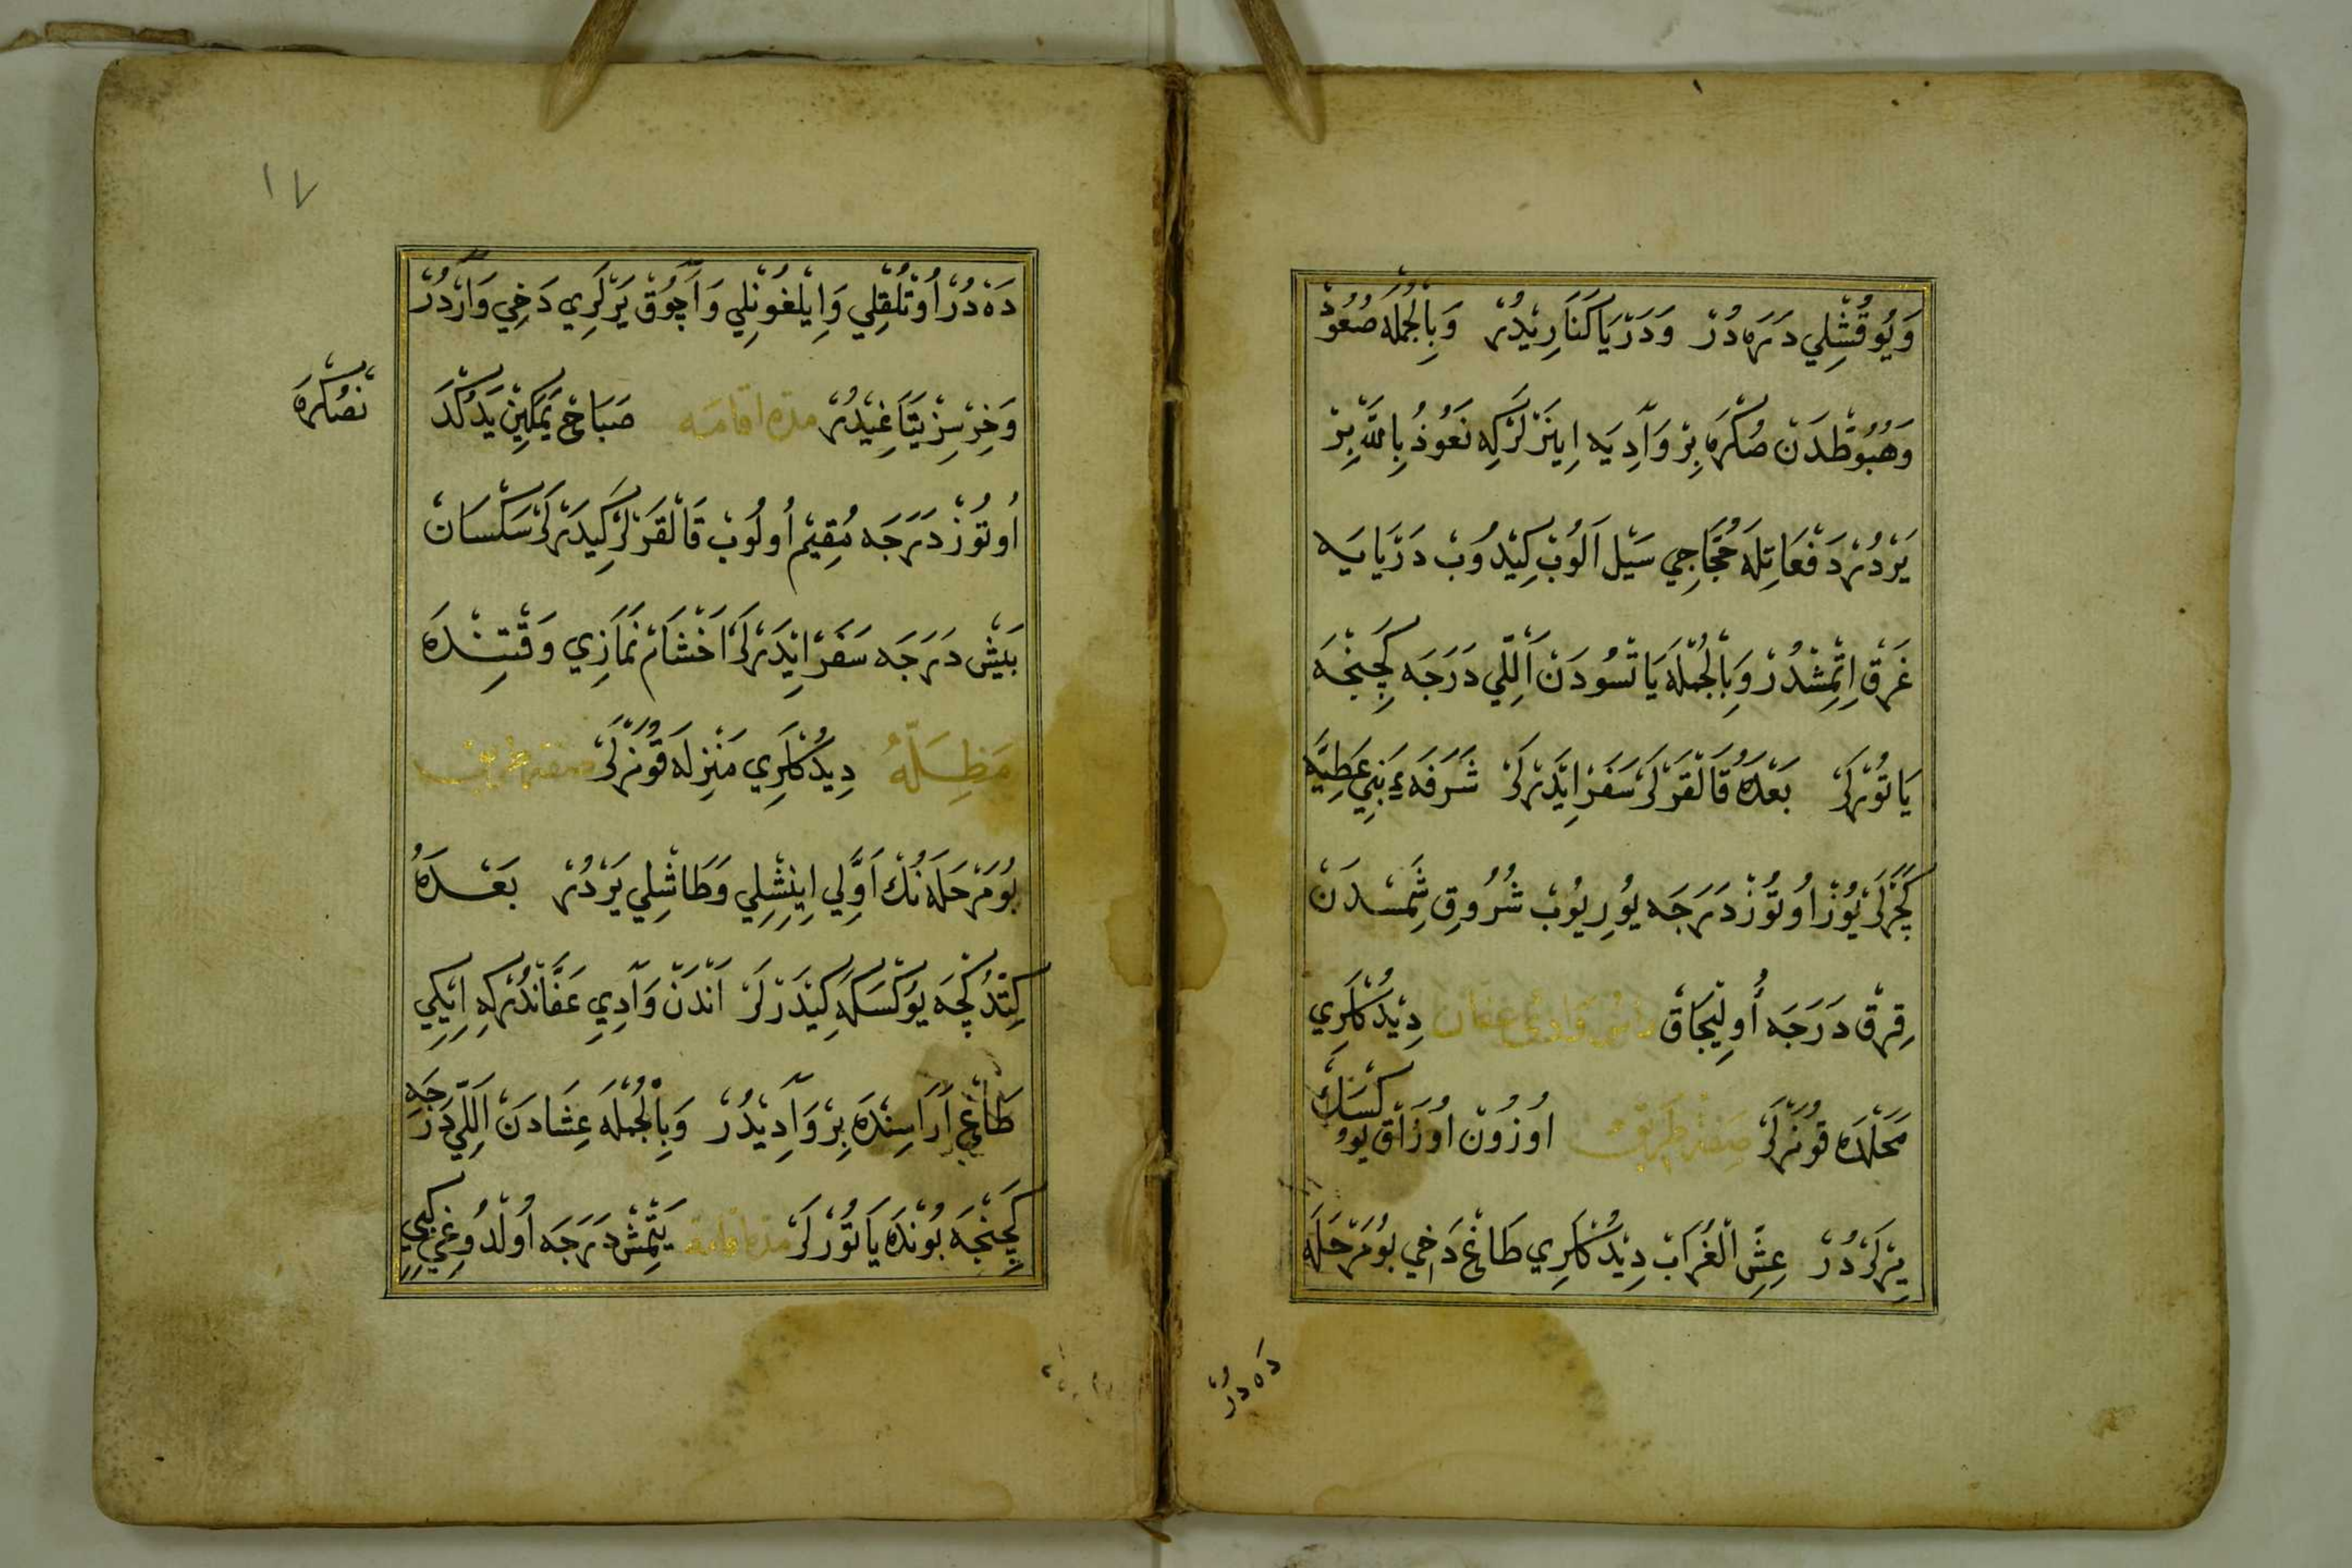 وَيُوقُشْلِي دَرَه دُرْ وَدَرْيَا كَنَارِيدُرْ وَبِالْجُمْلَه صُعُودْ
وَهُبُوطْدَنْ صُكْرَه بِرْ وَادِيَه اِينَرْلَرْكِه نَعُوذُ بِاللّٰه بِرْ
يَرْدُرْ دَفَعَاتِلَه حُجَّاجِي سَيْل اَلُوبْ كِيدُوبْ دَرْيَايَه
غَرْق اِتْمِشْدُرْ وَبِالْجُمْلَه يَاتْسُودَنْ اَللِّي دَرَجَه كِچِنْجَه
يَاتُورْلَرْ بَعْدَهُ قَالْقَرْلَرْ سَفَرْ اِيدَرْلَرْ شَرَفَهءِ بَنِي عَطِيَّه
كَچَرْلَرْ يُوزْ اُوتُوزْ دَرَجَه يُورِيُوبْ شُرُوقِ شَمِسْدَنْ
قِرْق دَرَجَه اُولِيجَاقْ رَأْسِ وَادِئ عَفَان دِيدُكْلَرِي
مَحَلْدَه قُونَرْلَرْ صِفَتِ طَرِيقْ اُوزُونْ اُوزَاقْ يُوكْسَكْ
يِرْلَرْدُرْ عِشِّ الْغُرَابْ دِيدُكْلَرِي طَاغْ دَخِي بُو مَرْحَلَه
دَه دُرْ
١٧
دَه دُرْ اُوتْلُقْلِي وَاِيلْغُونْلِي وَاَچُوقْ يَرْلَرِي دَخِي وَارْدُرْ
وَخِرْسِزْ يَتَاغِيدُرْ مدّه اقامَه صَبَاحْ يَمَكِينْ يَدُكْدَ
نْصُكْرَه
اُوتُوزْ دَرَجَه مُقِيمْ اُولُوبْ قَالْقَرْلَرْ كِيدَرْلَرْ سَكْسَانْ
بَيشْ دَرَجَه سَفَرْ اِيدَرْلَرْ اَخْشَامْ نَمَازِي وَقْتِنْدَه
مَظِلَّهُ دِيدُكْلَرِي مَنْزِلَه قُونَرْلَرْ صفت طريق
بُو مَرْحَلَه نُكْ اَوَّلِي اِينِشْلِي وَطَاشْلِي يَرْدُرْ بَعْدَهُ
كِتْدُكْچَه يُوكْسَكَه كِيدَرْلَرْ اَنْدَنْ وَادِي عَفَّانْدُرْكِه اِيكِي
طَاغْ اَرَاسِنْدَه بِرْ وَادِيدُرْ وَبِالْجُمْلَه عِشَادَنْ اَللِّي دَرَجَه
كِچِنْجَه بُونْدَه يَاتُورْلَرْ مدّه اقامه يَتْمِشْ دَرَجَه اُولْدُوغِي كِبِي